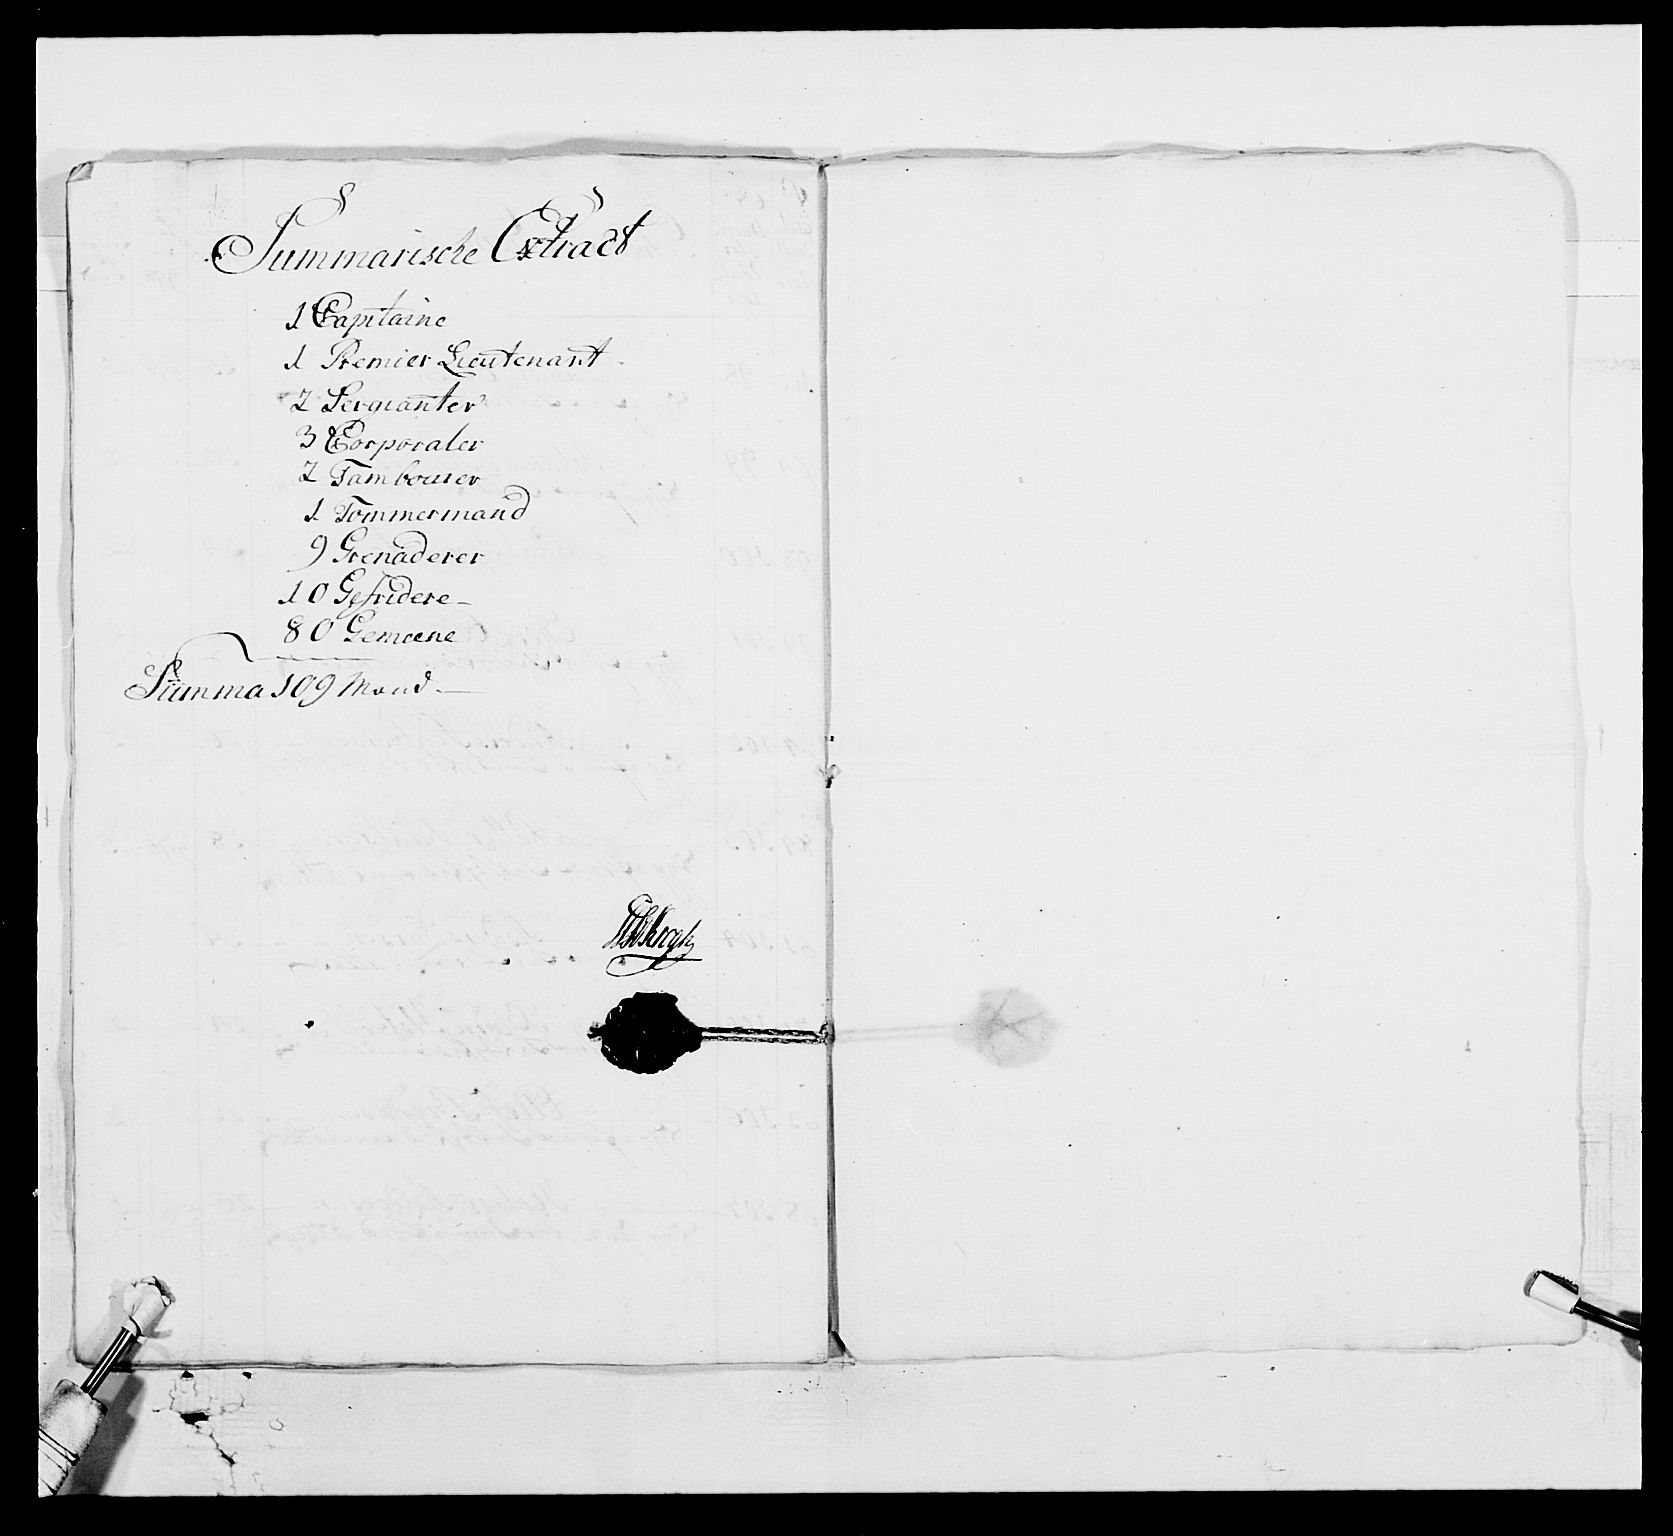 Summarische Extract
1 Capitaine
1 Premier Lieutenant
2 Sergianter
3 Corporaler
2 Tambourer
1 Tømmermand
9 Grenaderer
10 Gefridere
80 Gemeene
Summa 109 Mand